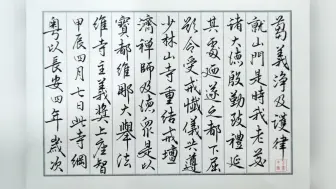 粵以長安四年歲次
甲辰四月七日此寺綱
維寺主義獎上座智
寶都維那大舉法
濟禪師及徒眾是以
少林山寺重結戒壇
欲令受戒懺儀共遵
其處迺遂之都下屈
諸大德殷勤致禮延
就山門是時我老苾
芻義淨及護律